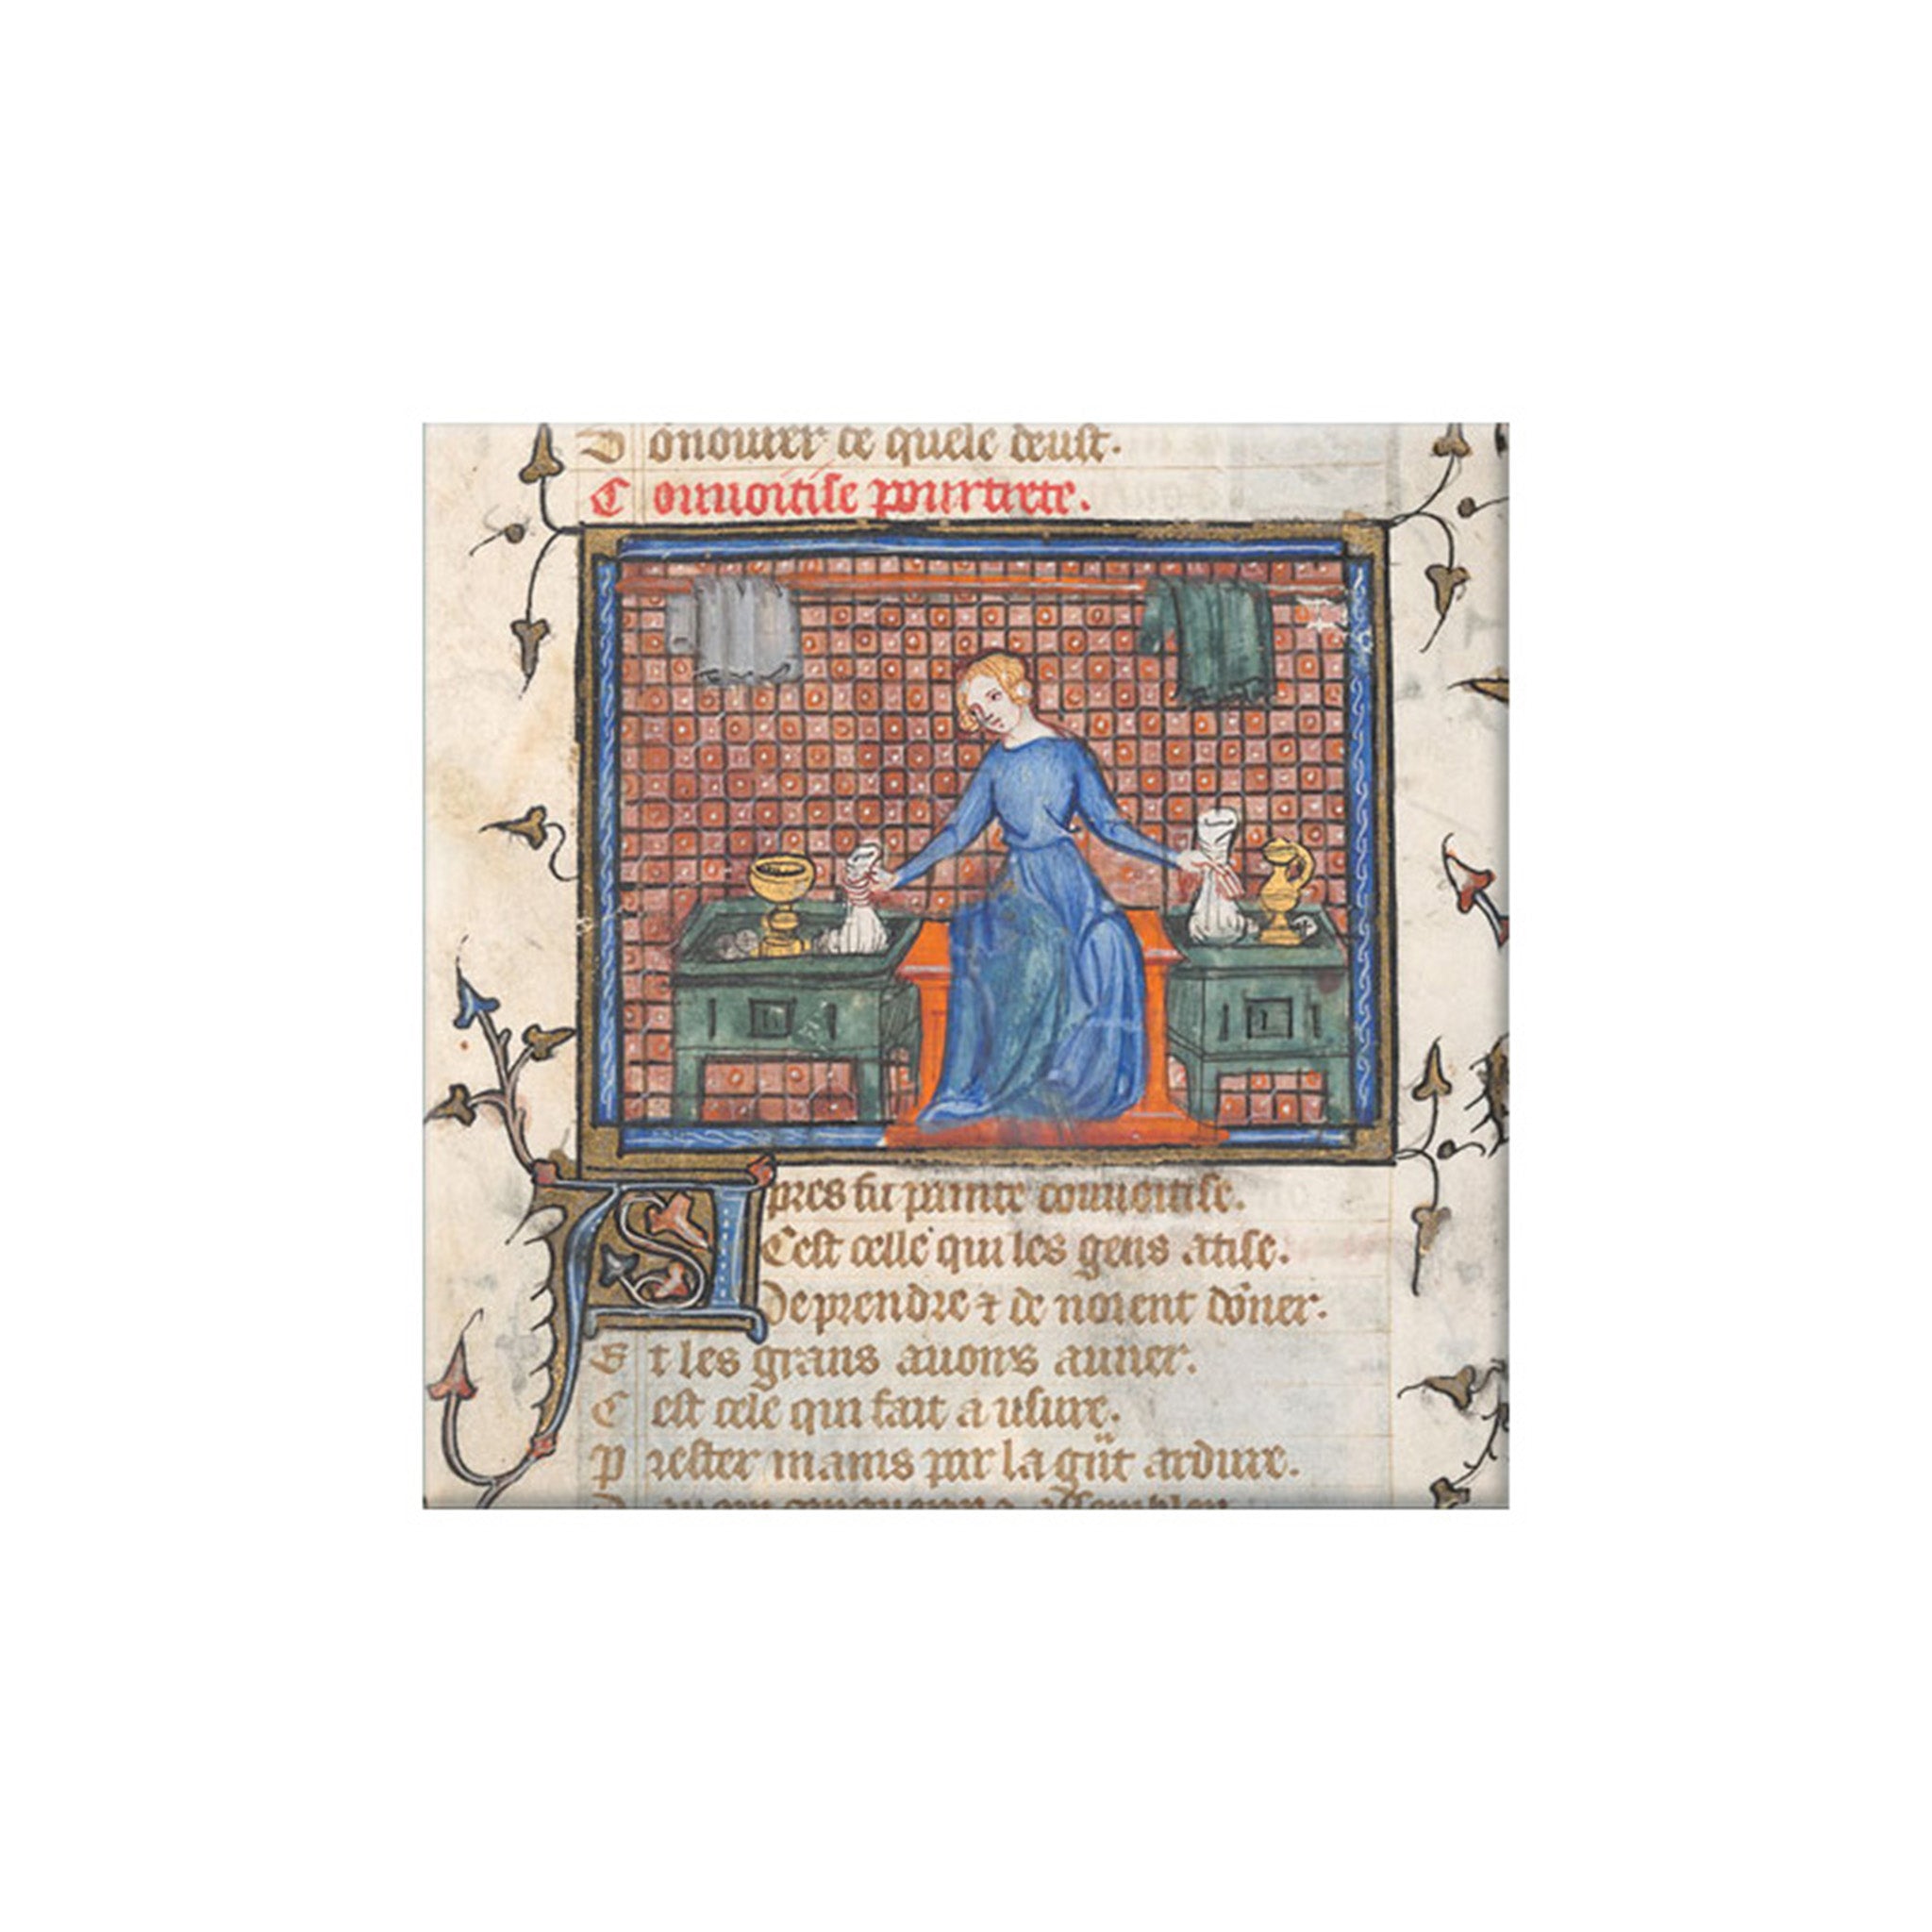 D onourer ce quele deust.
C onuoitise pourtrete.
Apres fu painte couuoitise.
Cest celle qui les gens atise.
De prendre ⁊ de noient dōner.
E t les grans auoirs auner.
C est cele qui fait a usure.
P rester mains por la gñt ardure.